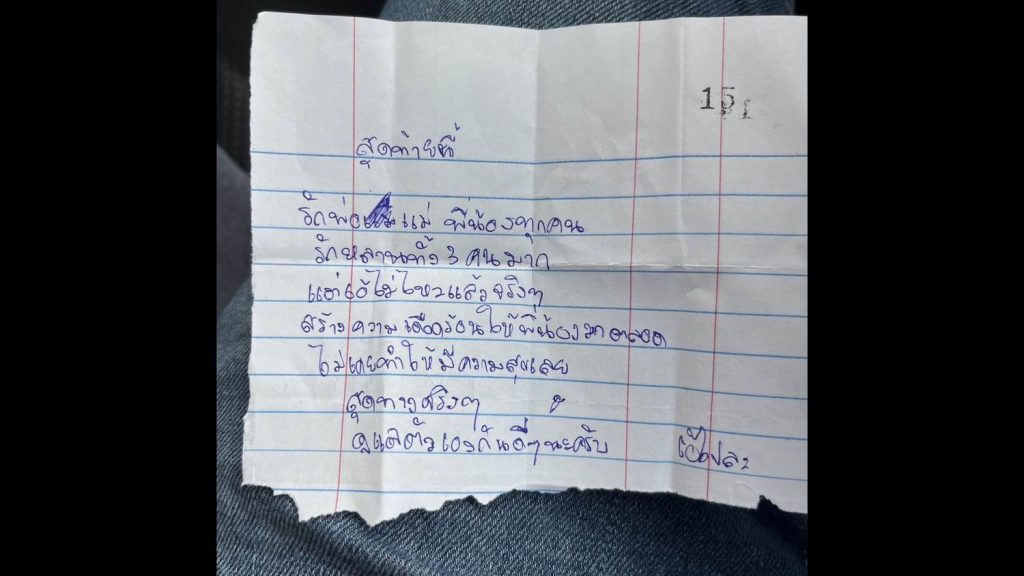 151
สุดท้ายนี้
รักพ่อ แม่ พี่น้องทุกคน
รักหลานทั้ง 3 คนมาก
แต่เอ้ไม่ไหวแล้วจริงๆ
สร้างความเดือดร้อนให้พี่น้องมาตลอด
ไม่เคยทำให้มีความสุขเลย
สุดทางจริงๆ
ดูแลตัวเองกันดีๆนะครับ เอ้ไปละ